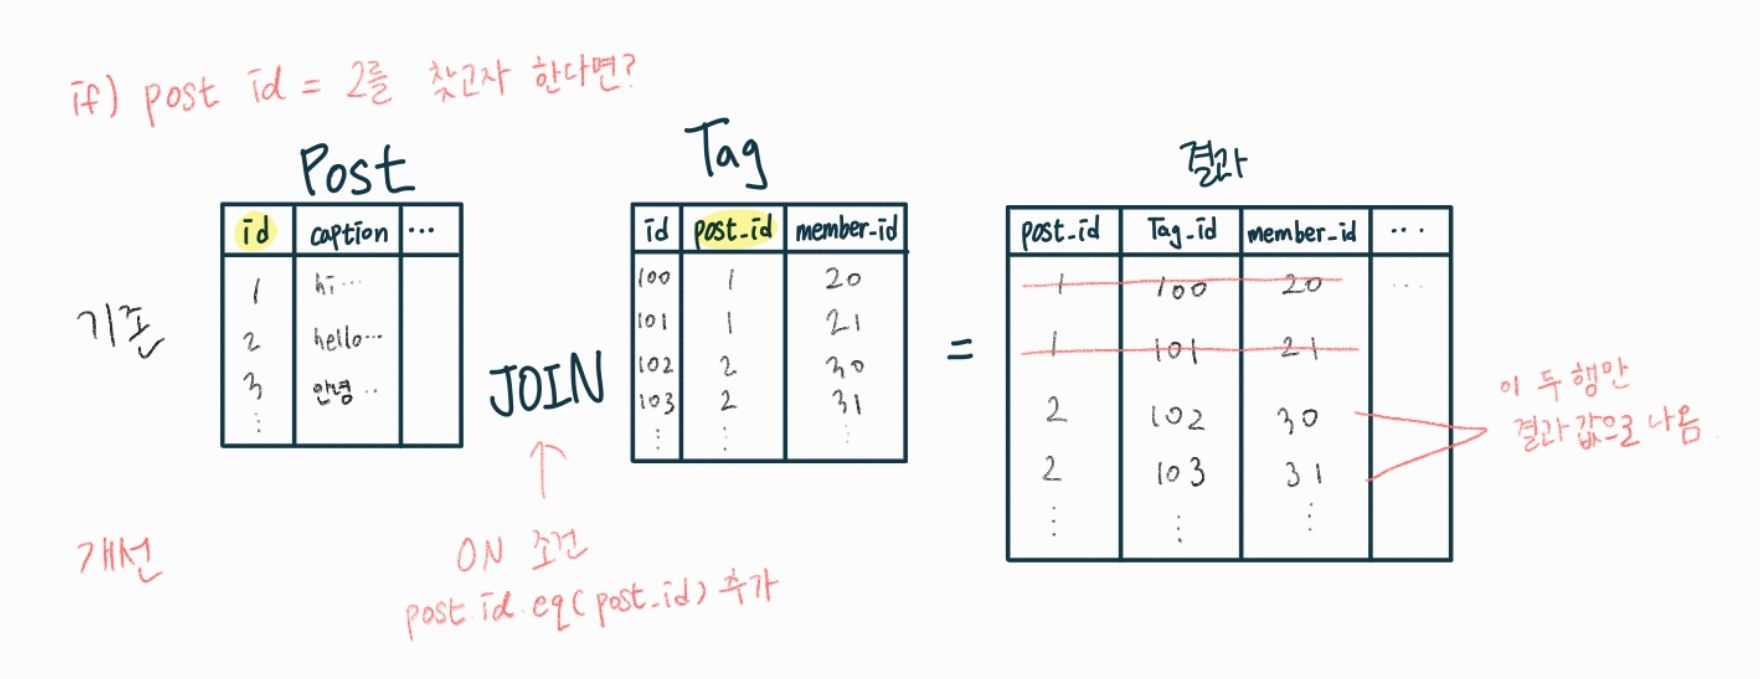 if) post id = 2를 찾고자 한다면?
Post
id caption ...
1 hi...
2 hello...
3 안녕 ..
기존
JOIN
Tag
id post_id member_id
100 1 20
101 1 21
102 2 30
103 2 31
=
결과
post_id Tag_id member_id ...
1 100 20 ...
1 101 21
2 102 30
2 103 31
이 두 행만
결과 값으로 나옴
개선
ON 조건
post.id.eq(post_id) 추가